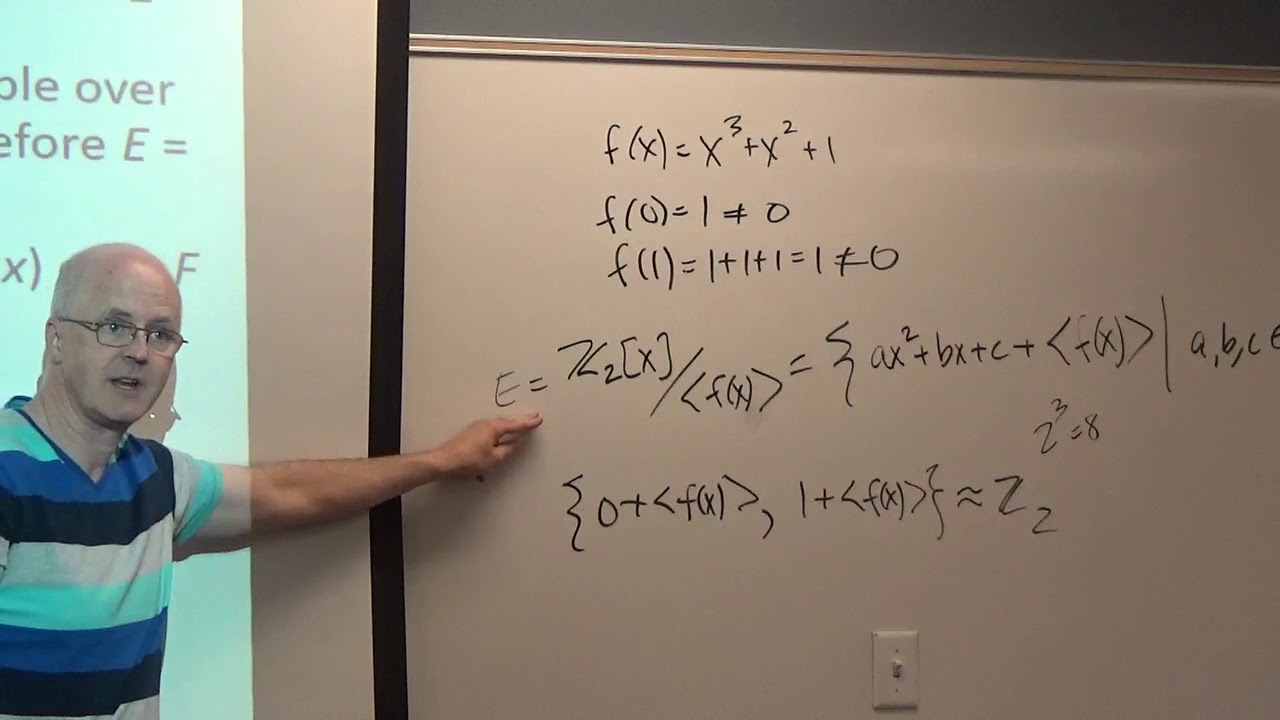 ble over
efore E =
x) F
f(x) = x³+x²+1
f(0) = 1 ≠ 0
f(1) = 1+1+1 = 1 ≠ 0
E = ℤ₂[x]/<f(x)> = { ax²+bx+c + <f(x)> | a,b,c ∈
2³=8
{0+<f(x)>, 1+<f(x)>} ≈ ℤ₂